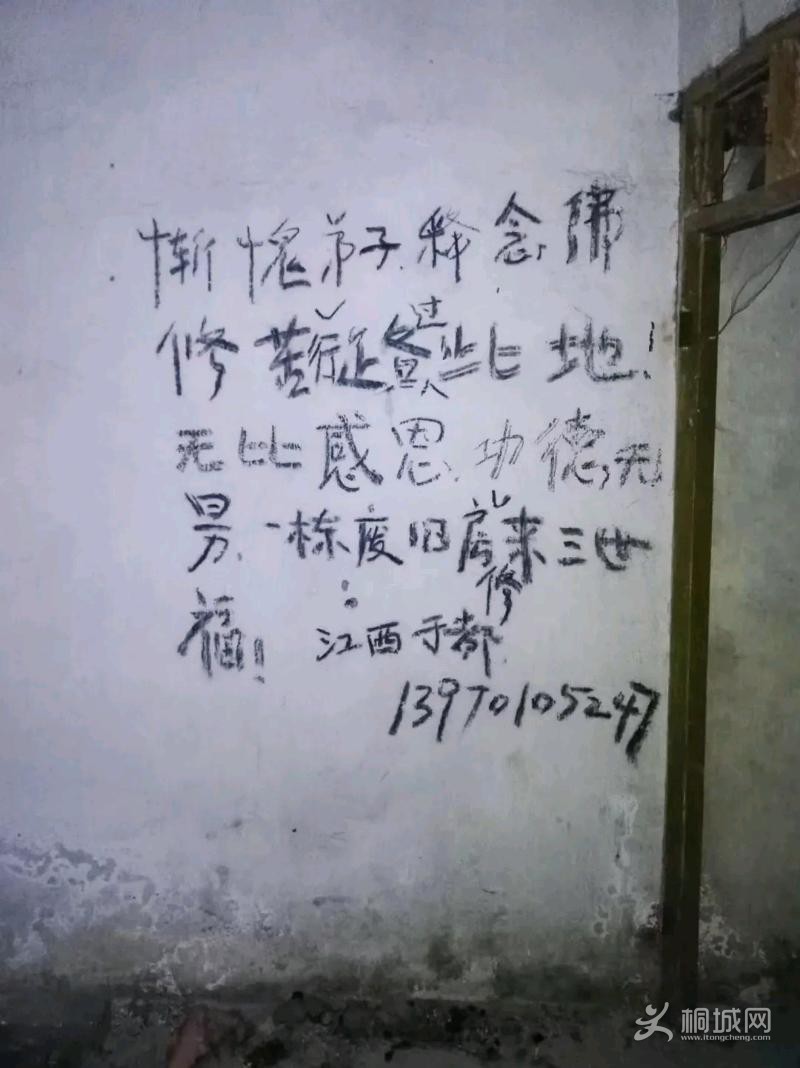 惭愧弟子释念佛
修苦行过此地!
无比感恩.功德无
一栋废旧房修来三世
福!江西于都
13970105247
桐城网
www.itongcheng.com